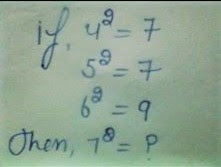 if, 4² = 7
5² = 7
6² = 9
then, 7² = ?